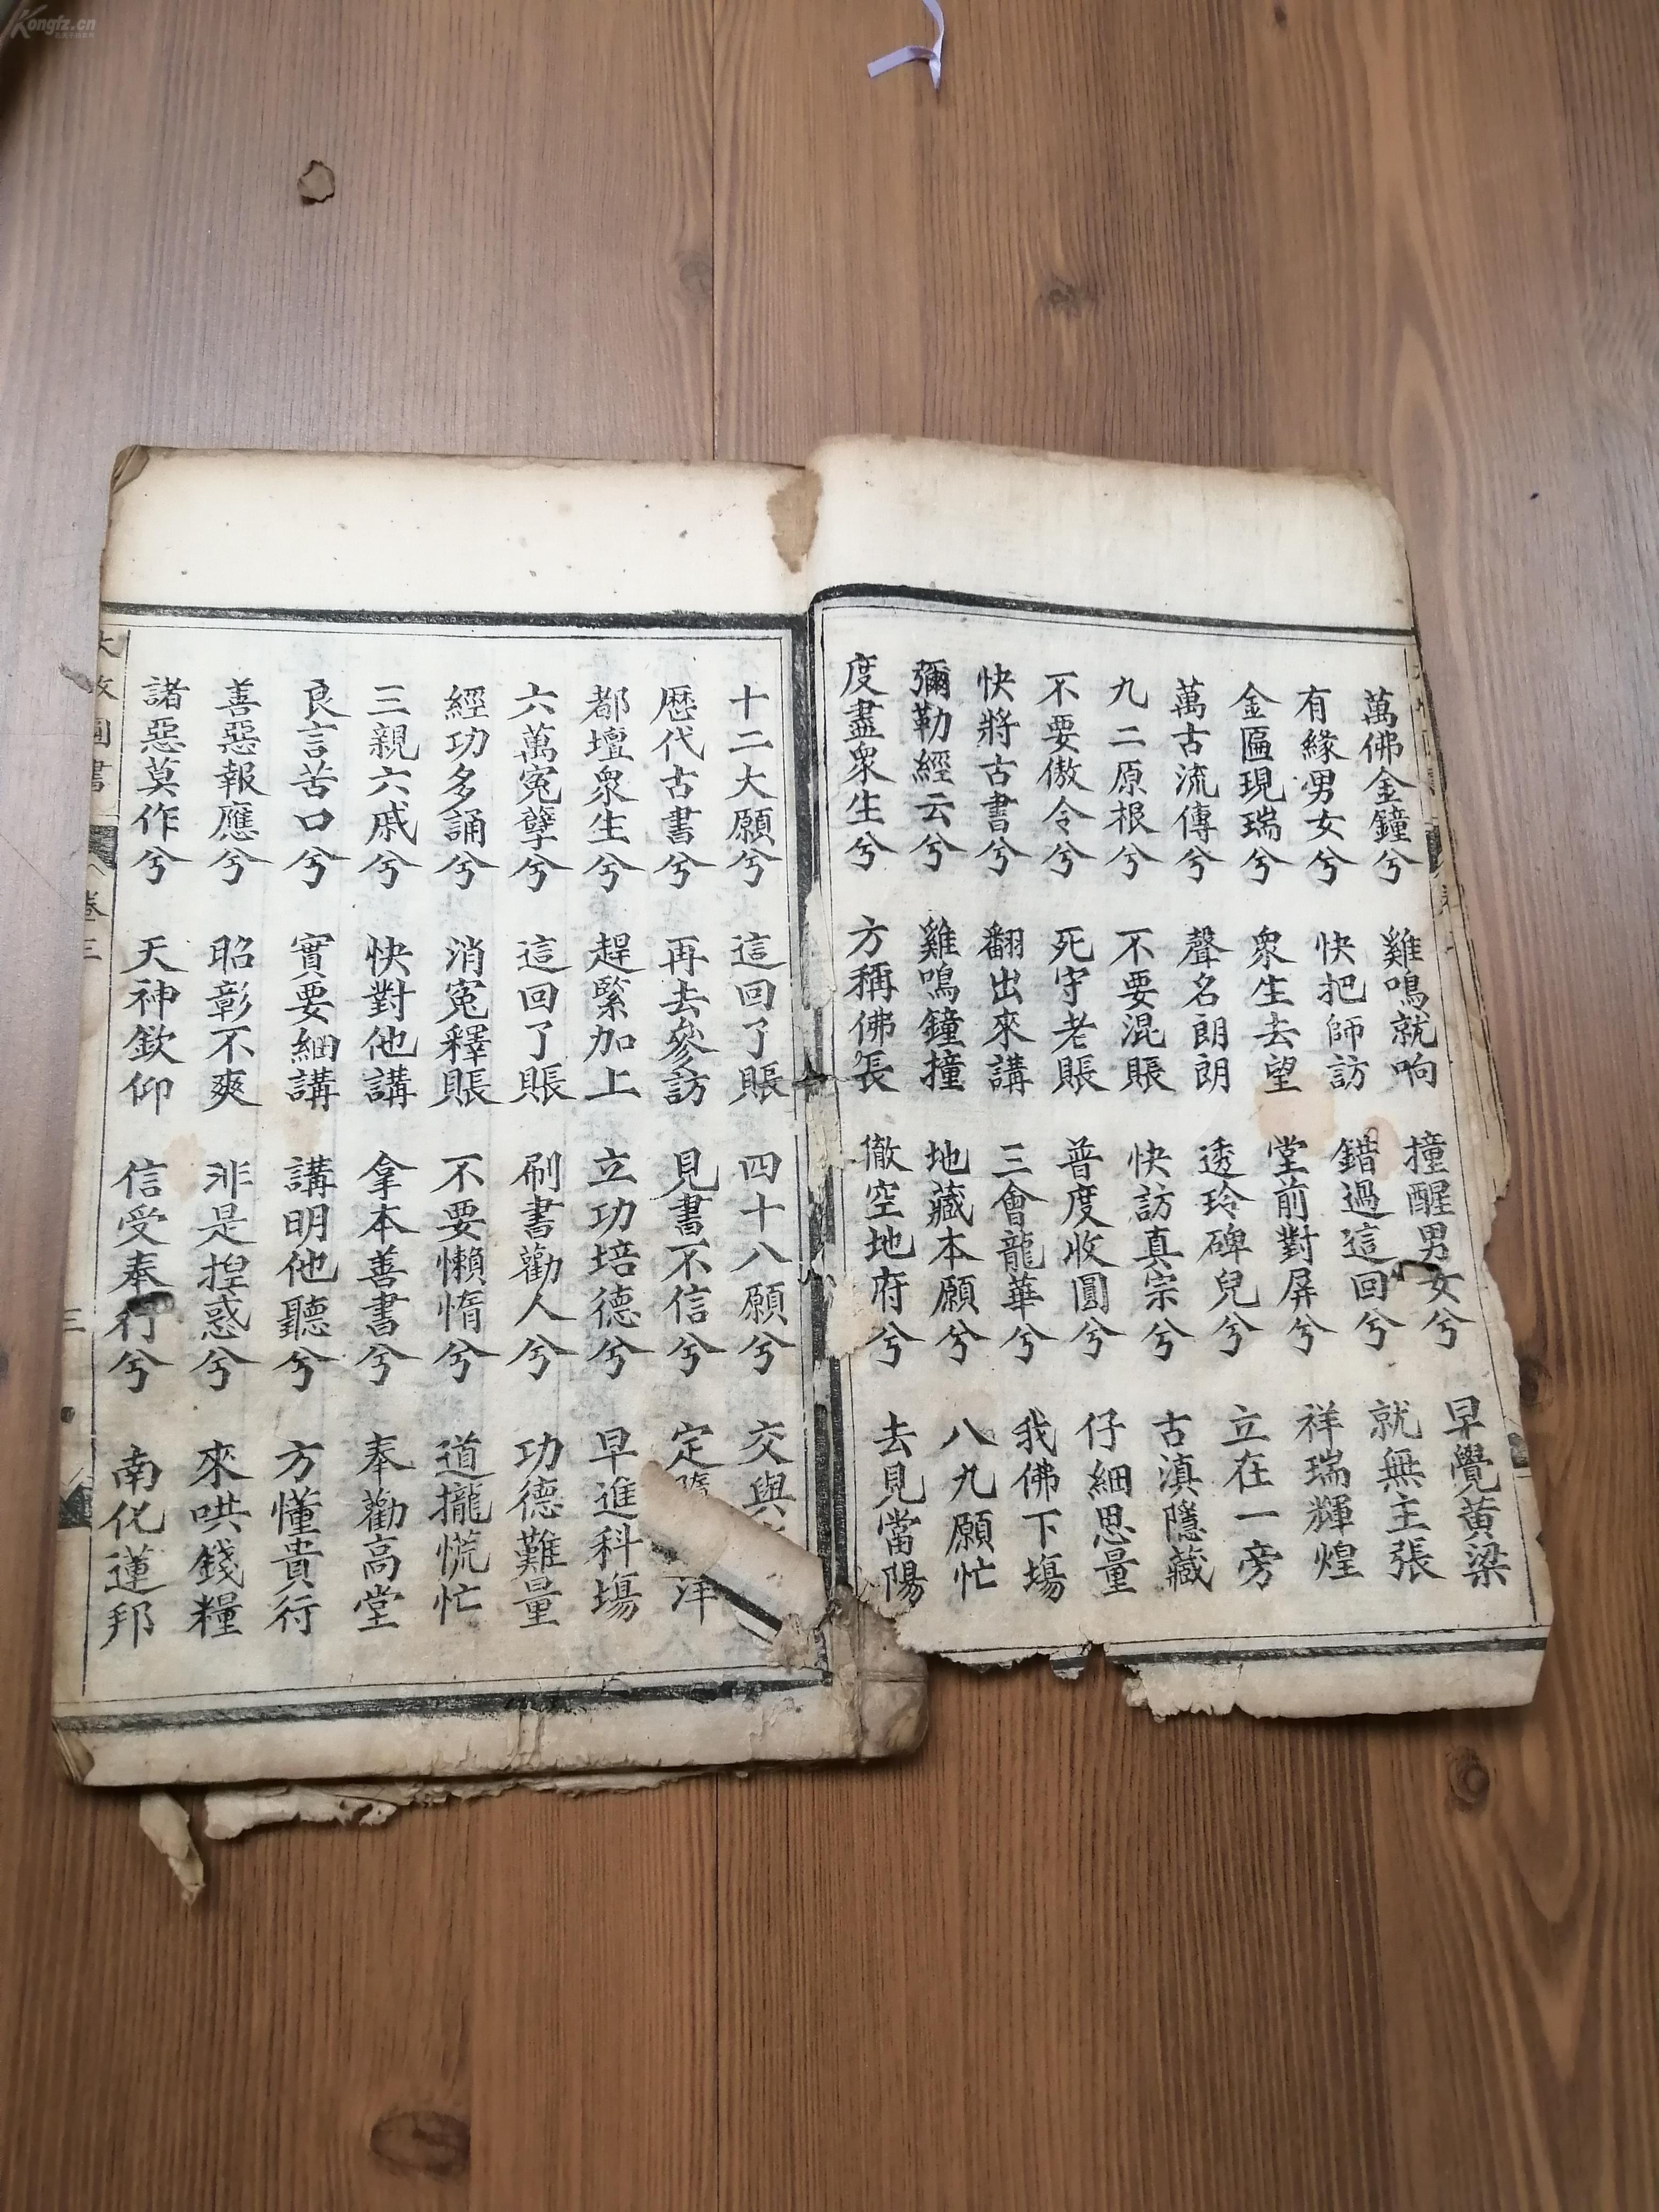 Kongfz.cn
萬佛金鐘兮 雞鳴就响 撞醒男女兮 早覺黄梁
有緣男女兮 快把師訪 錯過這回兮 就無主張
金匾現瑞兮 衆生去望 堂前對屏兮 祥瑞輝煌
萬古流傳兮 聲名朗朗 透玲碑兒兮 立在一旁
九二原根兮 不要混賬 快訪真宗兮 古滇隱藏
不要傲令兮 死守老賬 普度收圓兮 仔細思量
快將古書兮 翻出來講 三會龍華兮 我佛下塲
彌勒經云兮 雞鳴鐘撞 地藏本願兮 八九願忙
度盡衆生兮 方稱佛長 徹空地府兮 去見當陽
十二大願兮 這回了賬 四十八願兮 交與
歷代古書兮 再去參訪 見書不信兮 定
都壇衆生兮 趕緊加上 立功培德兮 早進科塲
六萬冤孽兮 這回了賬 刷書勸人兮 功德難量
經功多誦兮 消冤釋賬 不要懶惰兮 道攏慌忙
三親六戚兮 快對他講 拿本善書兮 奉勸高堂
良言苦口兮 實要細講 講明他聽兮 方懂貴行
善惡報應兮 昭彰不爽 非是惶惑兮 來哄錢糧
諸惡莫作兮 天神欽仰 信受奉行兮 南化蓮邦
書 卷三 三